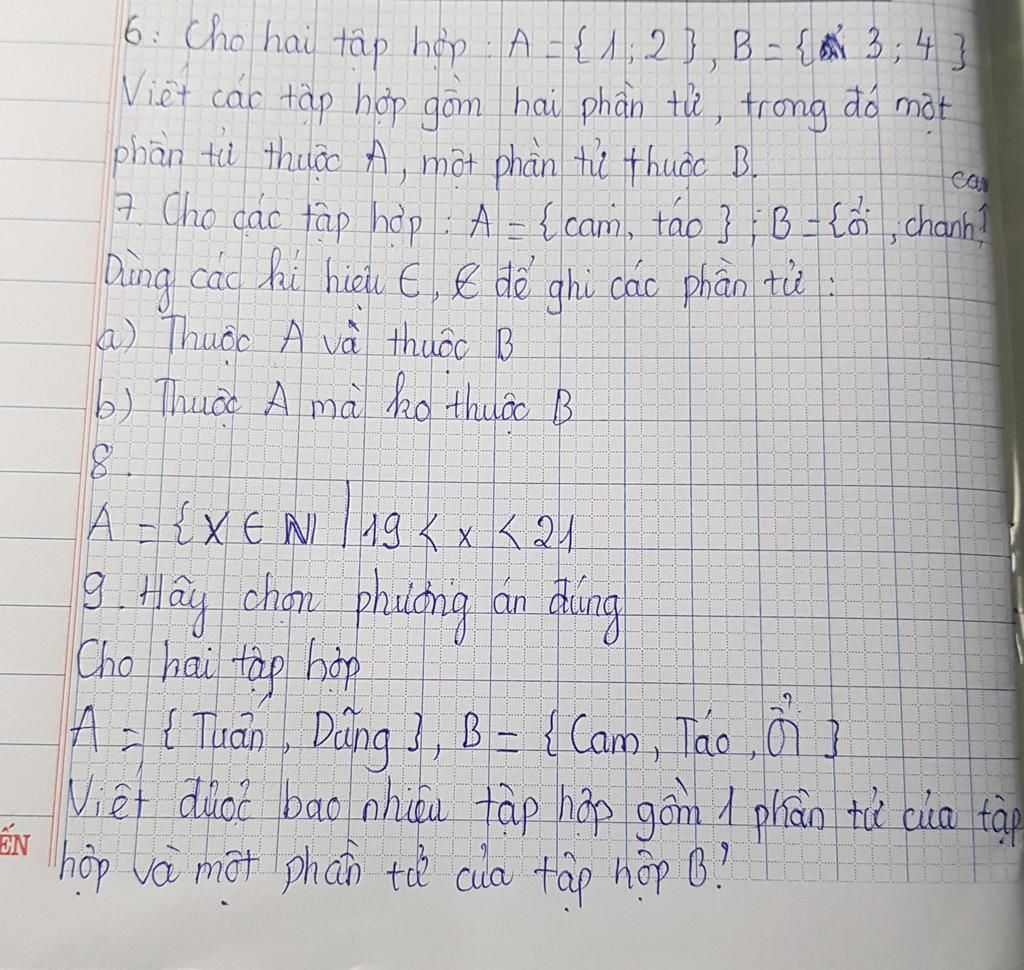 6: Cho hai tập hợp: A = {1; 2}, B = {3; 4}
Viết các tập hợp gồm hai phần tử, trong đó một
phần tử thuộc A, một phần tử thuộc B.
cam
7. Cho các tập hợp: A = {cam, táo}; B = {ổi, chanh,}
Dùng các kí hiệu ∈, ∉ để ghi các phần tử:
a) Thuộc A và thuộc B
b) Thuộc A mà ko thuộc B
8.
A = {x ∈ N | 19 < x < 21
9. Hãy chọn phương án đúng
Cho hai tập hợp
A = {Tuấn, Dũng}, B = {Cam, Táo, Ổi}
Viết được bao nhiêu tập hợp gồm 1 phần tử của tập
hợp và một phần tử của tập hợp B?
ẾN